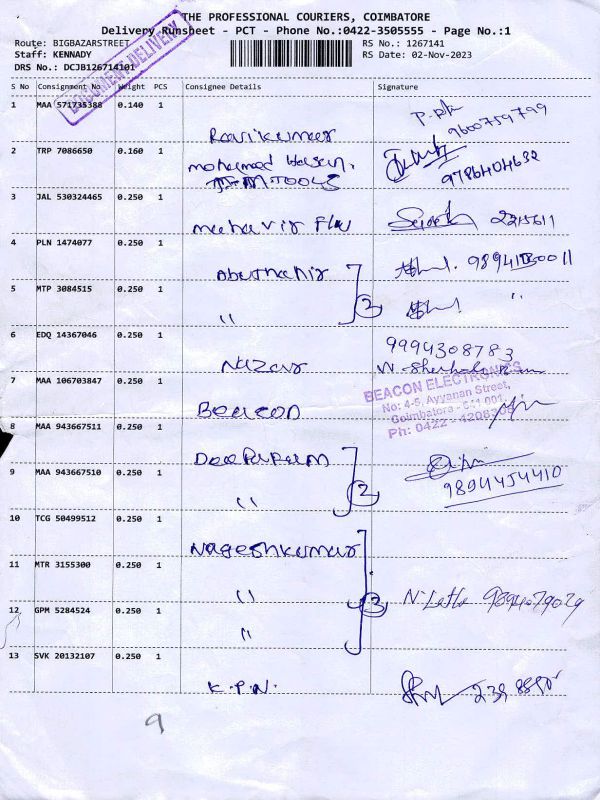 THE PROFESSIONAL COURIERS, COIMBATORE
Delivery Runsheet - PCT - Phone No.:0422-3505555 - Page No.:1
Route: BIGBAZARSTREET RS No.: 1267141
Staff: KENNADY RS Date: 02-Nov-2023
DRS No.: DCJB126714101
DOCUMENT DELIVERY
S No Consignment No Weight PCS Consignee Details Signature
1 MAA 571735388 0.140 1 Ravikumar 9600759799
2 TRP 7086650 0.160 1 mohamed 9786404632
TOOLS
3 JAL 530324465 0.250 1 mahavir 2215611
4 PLN 1474077 0.250 1 Abuthahir
5 MTP 3084515 0.250 1 " 2 "
6 EDQ 14367046 0.250 1 Nazar 9994308783
7 MAA 106703847 0.250 1 Beacon
BEACON ELECTRONICS
No: 4-5, Ayyanan Street,
Coimbatore - 641 001.
Ph: 0422 -
8 MAA 943667511 0.250 1 Deepapam
9 MAA 943667510 0.250 1 " 2 9894454410
10 TCG 50499512 0.250 1 Nageshkumar
11 MTR 3155300 0.250 1 " N. 9894079029
12 GPM 5284524 0.250 1 " 3
13 SVK 20132107 0.250 1 K.P.N.
9